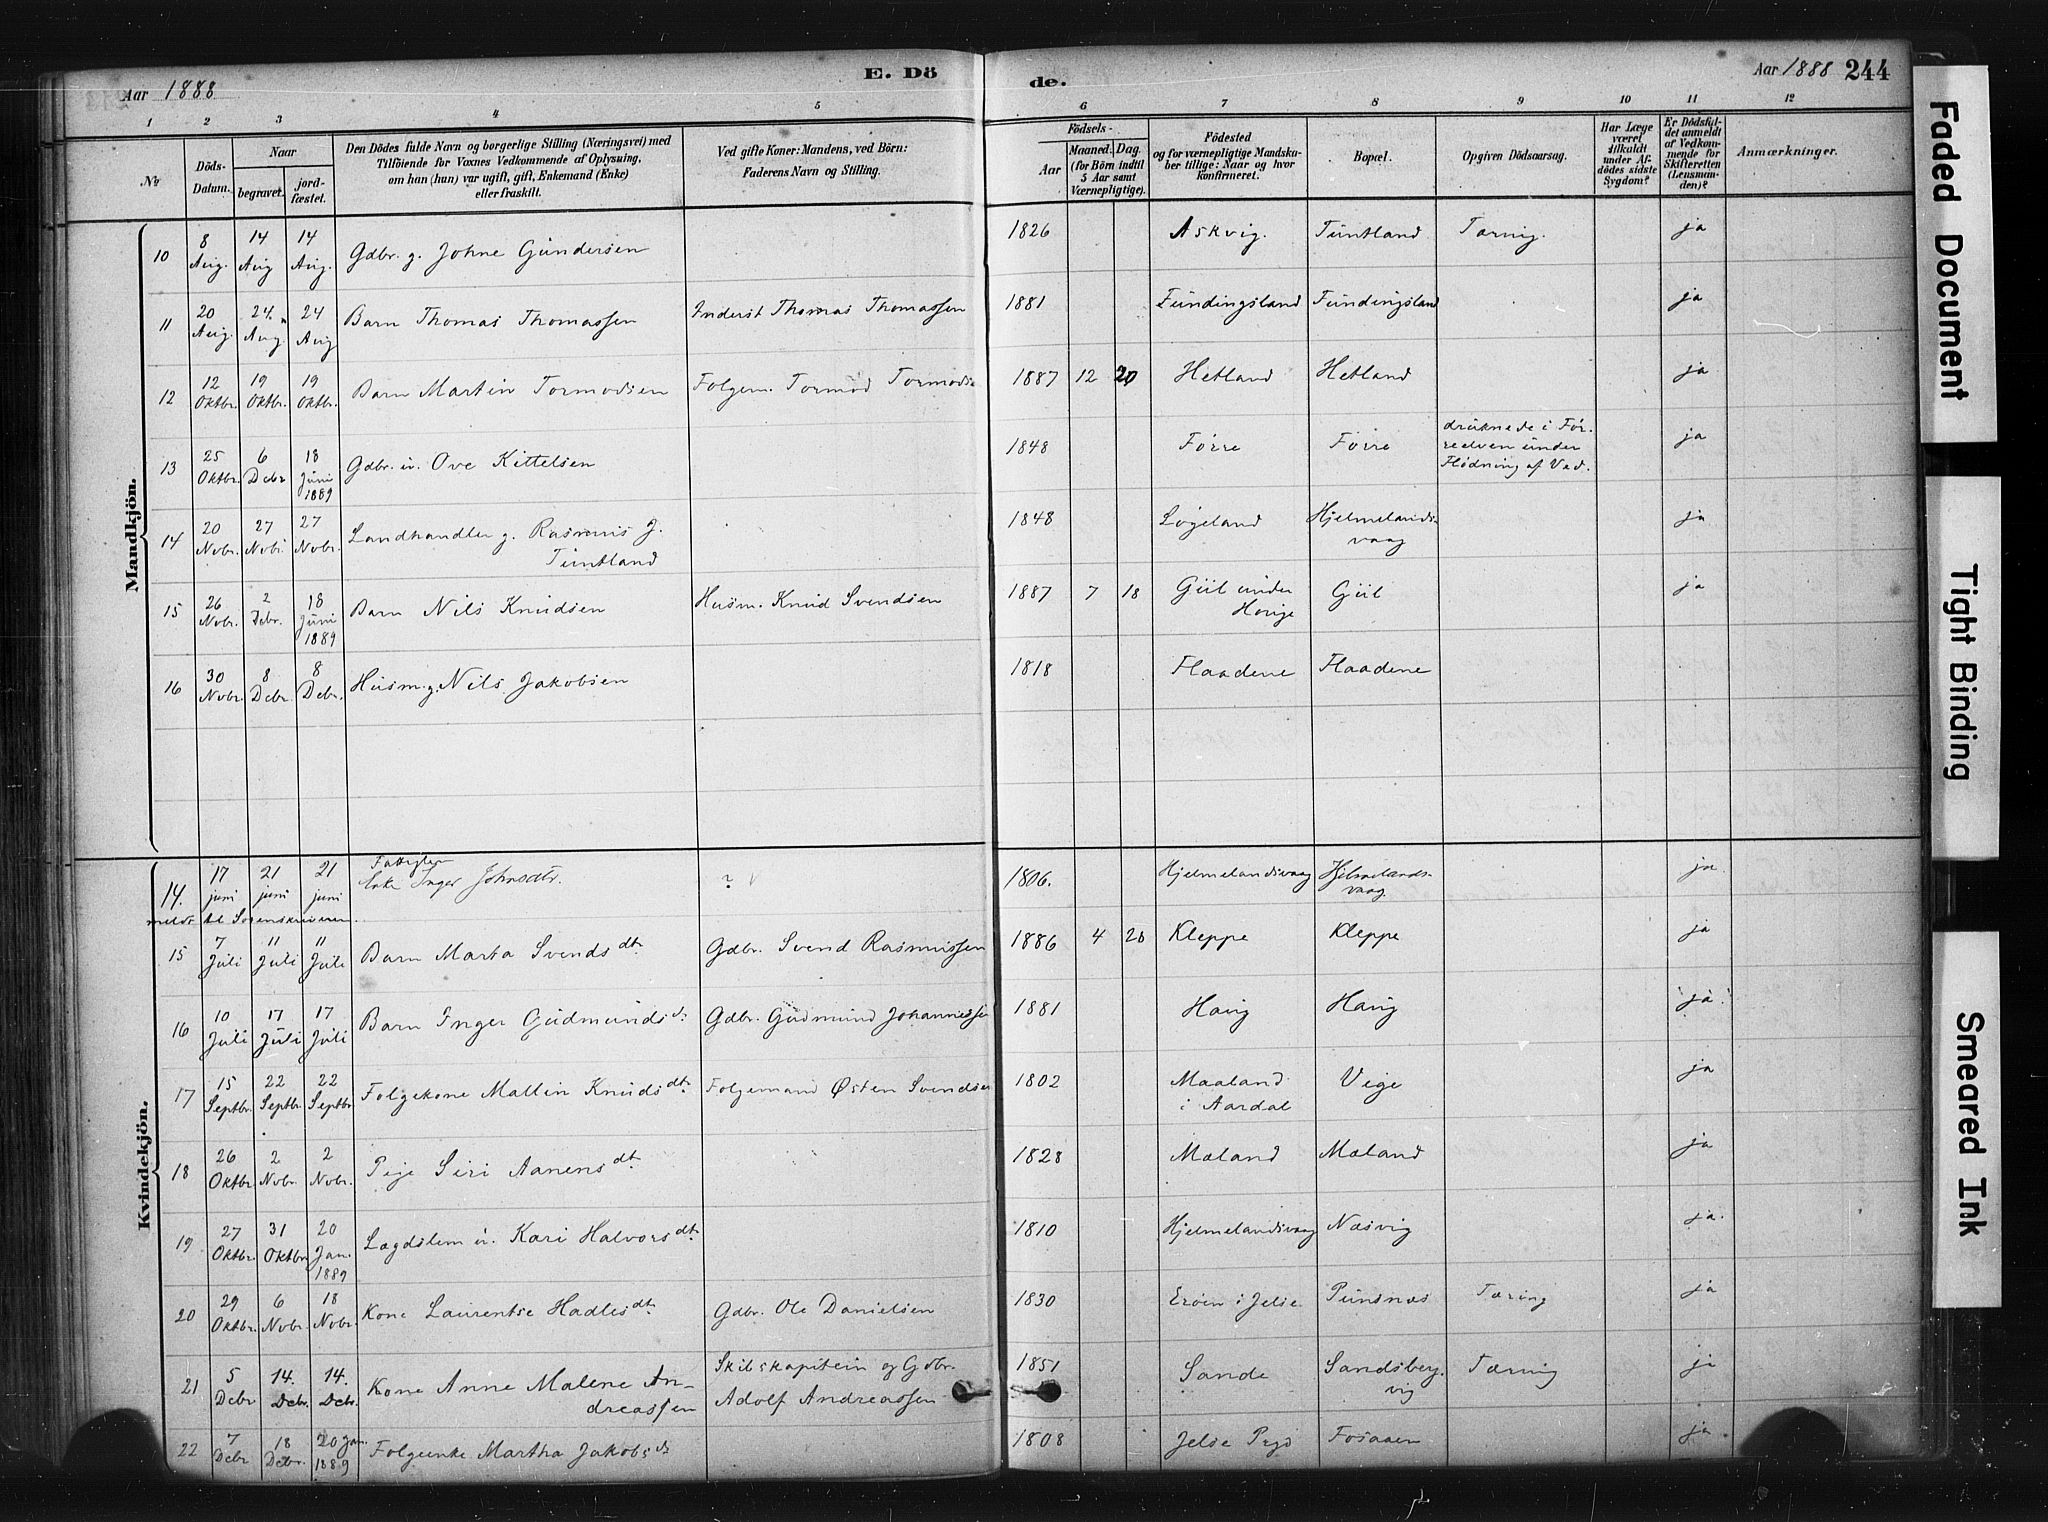 Aar 1888
E. Dö
de.
Aar 1888 244
1 2 3 4 5 6 7 8 9 10 11 12
No.
Döds-
Datum.
Naar
begravet.
jord-
fæstet.
Den Dödes fulde Navn og borgerlige Stilling (Næringsvei) med
Tilföiende for Voxnes Vedkommende af Oplysning,
om han (hun) var ugift, gift, Enkemand (Enke)
eller fraskilt.
Ved gifte Koner: Mandens, ved Börn:
Faderens Navn og Stilling.
Födsels-
Aar
Maaned. Dag.
(for Börn indtil
5 Aar samt
Værnepligtige).
Födested
og for værnepligtige Mandska-
ber tillige: Naar og hvor
konfirmeret.
Bopæl.
Opgiven Dödsaarsag.
Har Læge
været
tilkaldt
under Af-
dödes sidste
Sygdom?
Er Dödsfal-
det anmeldt
af Vedkom-
mende for
Skifteretten
(Lensman-
den)?
Anmærkninger.
Mandkjön.
10 8 Aug. 14 Aug 14 Aug. Gdbr. g. Johne Gundersen 1826 Askvig. Tuntland Tæring. ja
11 20 Aug. 24. Aug. 24 Aug Barn Thomas Thomassen Inderst Thomas Thomassen 1881 Fundingsland Fundingsland ja
12 12 Oktbr. 19 Oktbr. 19 Oktbr. Barn Martin Tormodsen Folgem. Tormod Tormods 1887 12 20 Hetland Hetland ja
13 25 Oktbr. 6 Debr 18 Juni 1889 Gdbr. u. Ove Kittelsen 1848 Førre Førre druknede i Før-
reelven under
Flødning af Ved. ja
14 20 Novbr. 27 Novbr. 27 Novbr. Landhandler g. Rasmus G.
Tuntland 1848 Løgeland Hjelmelands-
vaag ja
15 26 Novbr. 2 Debr. 18 Juni 1889 Barn Nils Knudsen Husm. Knud Svendsen 1887 7 18 Giil under
Hauge Giil ja
16 30 Novbr. 8 Debr. 8 Debr. Husm. g. Nils Jakobsen 1818 Flaadene Flaadene
Kvindekjön.
14. 17 juni 21 juni 21 juni Fattiglem
Enke Inger Johnsdtr. ? 1806. Hjelmelandsvaag Hjelmelands-
vaag ja
meldt til Sorenskriveren
15 7 Juli 11 Juli 11 Juli Barn Marta Svendsdtr. Gdbr. Svend Rasmussen 1886 4 20 Kleppe Kleppe ja
16 10 Juli 17 Juli 17 Juli Barn Inger Gudmundsd. Gdbr. Gudmund Johannessen 1881 Haug Haug ja
17 15 Septbr. 22 Septbr. 22 Septbr Folgekone Mallin Knudsdtr. Folgemand Østen Svendsen 1802 Maaland
i Aardal Vige ja
18 26 Oktbr. 2 Novbr. 2 Novbr. Pige Siri Aanensdtr. 1828 Mæland Mæland ja
19 27 Oktbr. 31 Oktbr 20 Jan. 1889 Lægdslem u. Kari Halvorsdtr. 1810 Hjelmelandsvaag Næsvig ja
20 29 Oktbr. 6 Novbr. 18 Novbr. Kone Laurentse Hadlesdtr. Gdbr. Ole Danielsen 1830 Erøen i Jelse Pundsnæs Tæring ja
21 5 Debr 14. Debr. 14. Debr. Kone Anne Malene An-
dreassen Skibskapitein og Gdbr.
Adolf Andreassen 1851 Sande Sandsberg
vig Tæring ja
22 7 Debr 18 Debr. 20 Jan. 1889 Folgeenke Martha Jakobsd. 1808 Jelse Prgd Fosaaen ja
Faded Document
Tight Binding
Smeared Ink